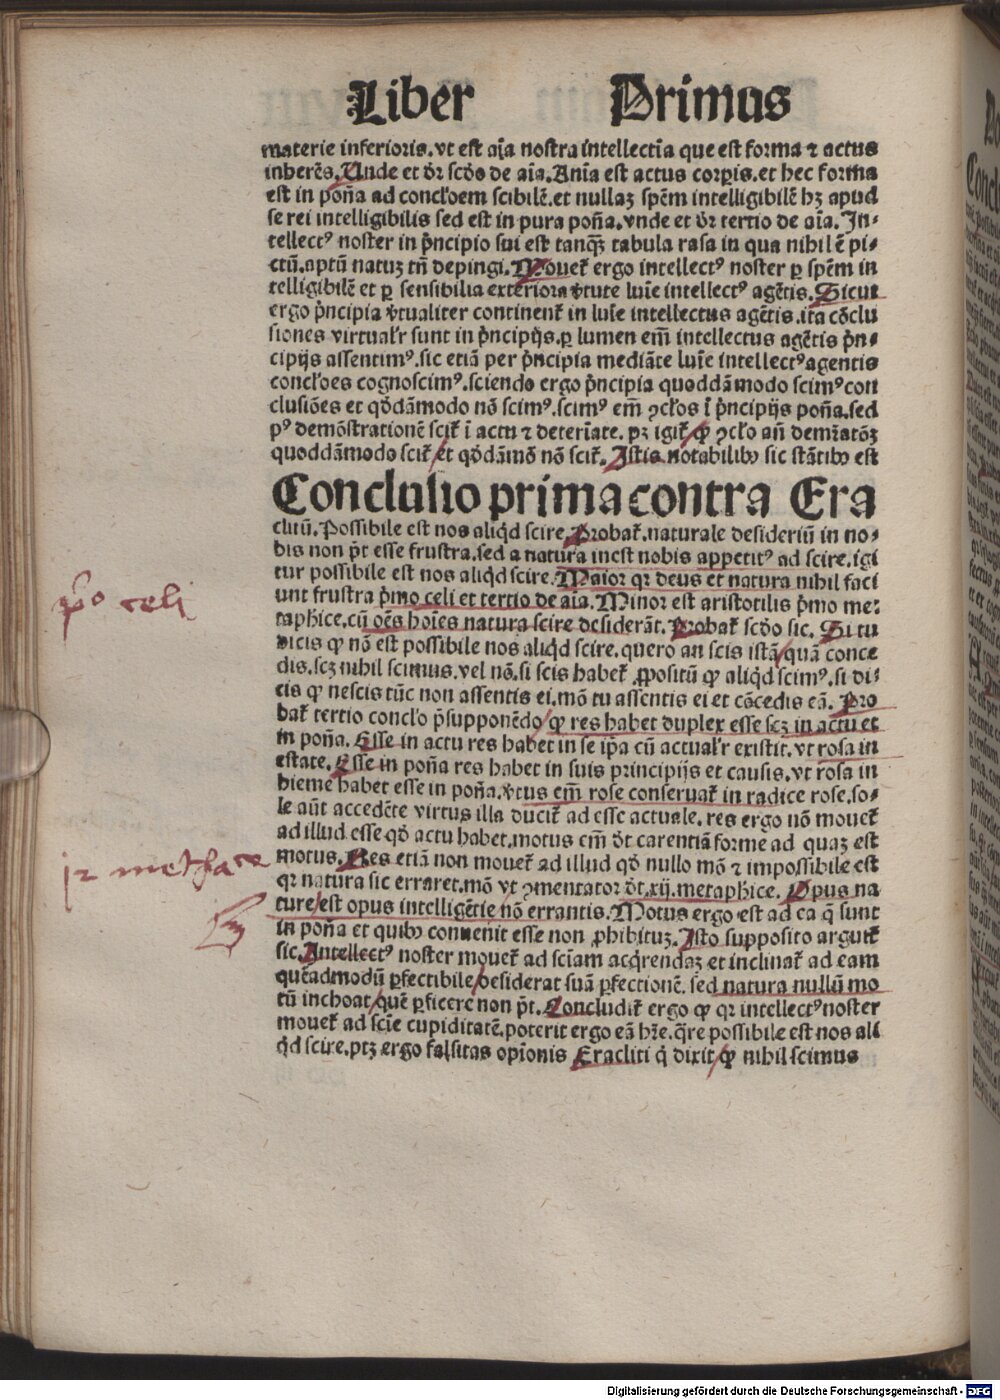 Liber Primus
materie inferioris.vt est aĩa nostra intellectiua que est forma ⁊ actus
inherẽs.Unde et dr̃ scd̃o de aĩa.Aĩnia est actus corꝑis.et hec forma
est in poñia ad concl̃oem scibilẽ.et nullaꝫ spẽm intelligibilẽ hꝫ apud
se rei intelligibilis sed est in pura poñia.vnde et dr̃ tertio de aĩa. In⸗
tellectꝰ noster in p̃ncipio sui est tanqȝ̃ tabula rasa in qua nihil ẽ pi⸗
ctũ.aptũ natuꝫ tñ depingi.Mouet̃ ergo intellectꝰ noster ꝑ spẽm in
telligibilẽ et ꝑ sensibilia exteriora ṽtute lum̃ie intellectꝰ agẽtis.Sicut
ergo p̃ncipia ṽtualiter continent̃ in lum̃ie intellectus agẽtis.ita cõclu
siones virtual̃r sunt in p̃ncipijs.ꝑ lumen em̃ intellectus agẽtis p̃n⸗
cipijs assentimꝰ.sic etiã per p̃ncipia mediãte lum̃ie intellectꝰagentis
concl̃oes cognoscimꝰ.sciendo ergo p̃ncipia quoddã modo scimꝰ con
clusiões et qd̃dãmodo nõ scimꝰ.scimꝰ em̃ ꝯcl̃os ĩ p̃ncipijs poñia.sed
pꝰ demõstrationẽ scit̃ ĩ actu ⁊ determ̃iate. pꝫ igit̃ ꝙ ꝯcl̃o añ demr̃atõꝫ
quoddãmodo scit̃ et qd̃dãmõ nõ scit̃. Istis notabilibꝰ sic stãtibꝰ est
Conclusio prima contra Era
clitũ.Possibile est nos aliqd̃ scire.Probat̃.naturale desideriũ in no⸗
bis non p̃t esse frustra.sed a natura inest nobis appetitꝰ ad scire.igi
tur possibile est nos aliqd̃ scire.Maior qr deus et natura nihil faci
unt frustra p̃mo celi et tertio de aĩa.Minor est aristotilis p̃mo me⸗
taph̃ice.cũ oẽs hoĩes natura scire desiderãt.Probat̃ scd̃o sic. Si tu
dicis ꝙ nõ est possibile nos aliqd̃ scire.quero an scis istã quã conce
dis.scꝫ nihil scimus.vel nõ.si scis habet̃ ꝓpositũ ꝙ aliqd̃ scimꝰ.si di⸗
cis ꝙ nescis tũc non assentis ei.mõ tu assentis ei et cõcedis eã. Pro
bat̃ tertio concl̃o p̃supponẽdo ꝙ res habet duplex esse scꝫ in actu et
in poñia. Esse in actu res habet in se ip̃a cũ actual̃r existit.vt rosa in
estate. Esse in poñia res habet in suis principijs et causis.vt rosa in
hieme habet esse in poñia.ṽtus em̃ rose conseruat̃ in radice rose.so⸗
le aũt accedẽte virtus illa ducit̃ ad esse actuale. res ergo nõ mouet̃
ad illud esse qd̃ actu habet.motus em̃ dr̃ carentiã forme ad quaꝫ est
motus.Res etiã non mouet̃ ad illud qd̃ nullo mõ ⁊ impossibile est
qr natura sic erraret.mõ vt ꝯmentator dr̃.xij.metaph̃ice. Opus na
ture est opus intelligẽtie nõ errantis.Motus ergo est ad ea q̃ sunt
in poñia et quibꝰ conuenit esse non ꝓhibituꝫ.Isto supposito arguit̃
sic.Intellectꝰ noster mouet̃ ad sciam acq̃rendaꝫ et inclinat̃ ad eam
quẽadmodũ ꝑfectibile desiderat suã ꝑfectionẽ. sed natura nullũ mo
tũ inchoat quẽ ꝑficere non p̃t. Concludit̃ ergo ꝙ qr intellectꝰnoster
mouet̃ ad scĩe cupiditatẽ.poterit ergo eã hr̃e.q̃re possibile est nos ali
qd̃ scire.ptꝫ ergo falsitas opĩonis Eracliti q̃ dixit ꝙ nihil scimus
pº celi
12 methace
Digitalisierung gefördert durch die Deutsche Forschungsgemeinschaft - DFG